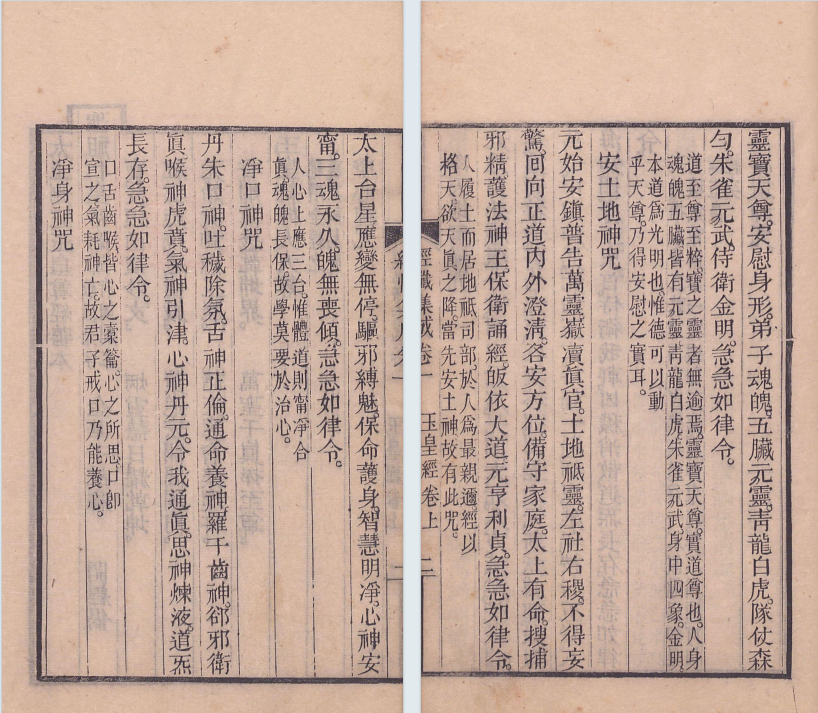 靈寶天尊。安慰身形。弟子魂魄。五臟元靈。靑龍白虎。隊仗森
勻。朱雀元武。侍衛金明。急急如律令。
道至尊至粹。寶之靈者無逾焉。靈寶天尊。寶道尊也。人身
魂魄五臟皆有元靈。靑龍白虎朱雀元武。身中四象。金明。
本道爲光明也。惟德可以動
乎天尊。乃得安慰之賁耳。
安土地神咒
元始安鎭。普告萬靈。嶽瀆眞官。土地祗靈。左社右稷。不得妄
驚。囘向正道。內外澄淸。各安方位。備守家庭。太上有命。搜捕
邪精。護法神王。保衛誦經。皈依大道。元亨利貞。急急如律令。
人履土而居。地祗司部。於人爲最親邇。經以
格天。欲天眞之降。當先安土神。故有此咒。
經懺集成卷一 玉皇經卷上 二
太上台星。應變無停。驅邪縛魅。保命護身。智慧明淨。心神安
甯。三魂永久。魄無喪傾。急急如律令。
人心上應三台。惟體道則甯淨合
眞。魂魄長保。故學莫要於治心。
淨口神咒
丹朱口神。吐穢除氛。舌神正倫。通命養神。羅千齒神。郤邪衛
眞。喉神虎賁。氣神引津。心神丹元。令我通眞。思神煉液。道炁
長存。急急如律令。
口舌齒喉。皆心之橐籥。心之所思。口卽
宣之。氣耗神亡。故君子戒口乃能養心。
淨身神咒